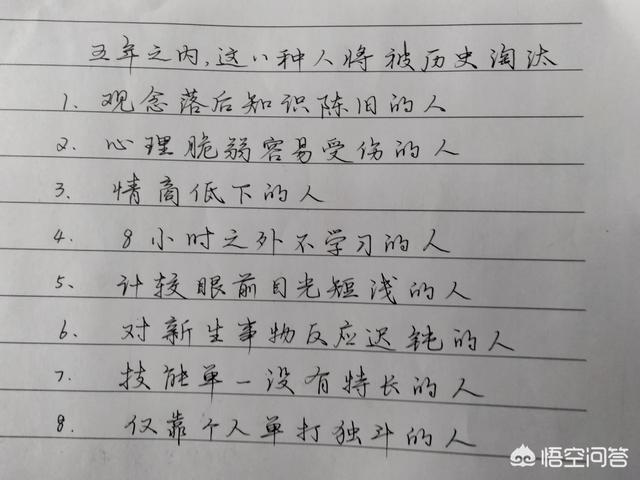 五年之内,这八种人将被历史淘汰
1. 观念落后知识陈旧的人
2. 心理脆弱容易受伤的人
3. 情商低下的人
4. 8小时之外不学习的人
5、计较眼前目光短浅的人
6. 对新生事物反应迟钝的人
7. 技能单一没有特长的人
8. 仅靠个人单打独斗的人
悟空问答